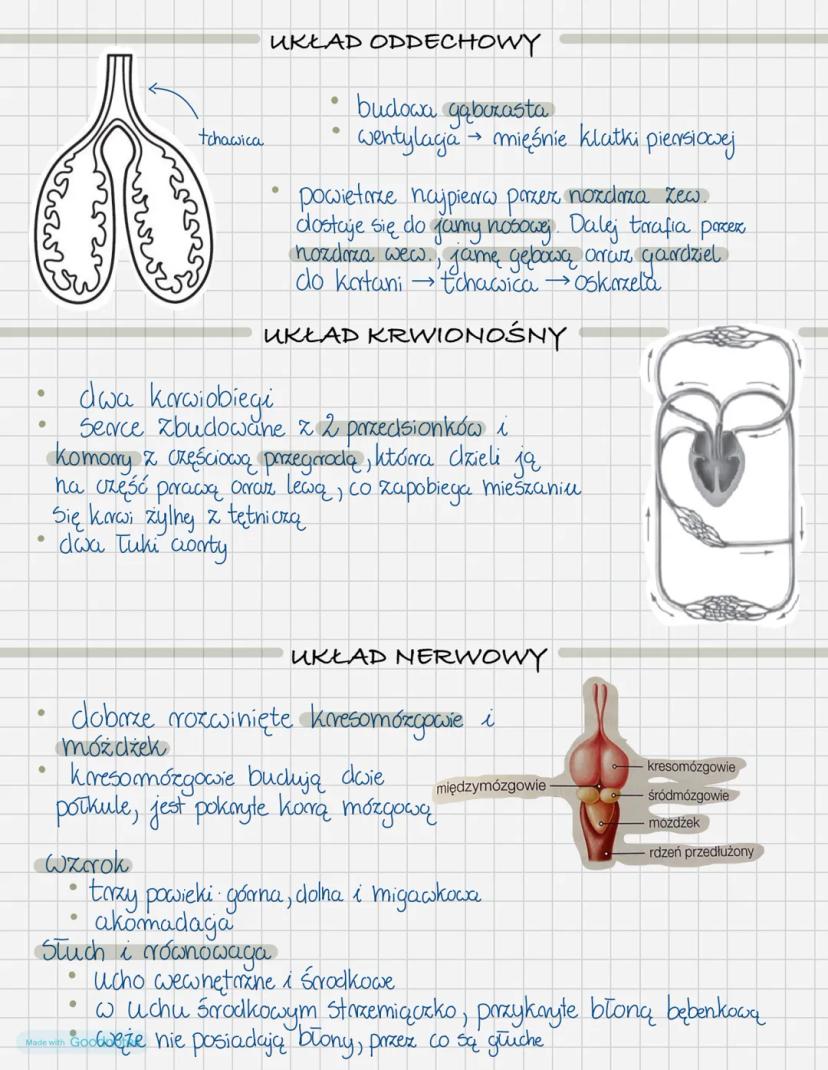 UKŁAD ODDECHOWY
tchawica
• budowa gąbczasta
• wentylacja → mięśnie klatki piersiowej
• powietrze najpierw przez nozdrza zew.
dostaje się do jamy nosowej. Dalej trafia przez
nozdrza wew., jamę gębową oraz gardziel
do krtani → tchawica → oskrzela
UKŁAD KRWIONOŚNY
• dwa krwiobiegi
• serce zbudowane z 2 przedsionków i
komory z częściową przegrodą, która dzieli ją
na część prawą oraz lewą, co zapobiega mieszaniu
się krwi żylnej z tętniczą
• dwa łuki aorty
UKŁAD NERWOWY
• dobrze rozwinięte kresomózgowie i
móżdżek
• kresomózgowie budują dwie
półkule, jest pokryte korą mózgową
międzymózgowie
kresomózgowie
śródmózgowie
móżdżek
rdzeń przedłużony
wzrok
• trzy powieki: górna, dolna i migawkowa
• akomadacja
słuch i równowaga
• ucho wewnętrzne i środkowe
• w uchu środkowym strzemiączko, przykryte błoną bębenkową
• węże nie posiadają błony, przez co są głuche
Made with Goodnotes